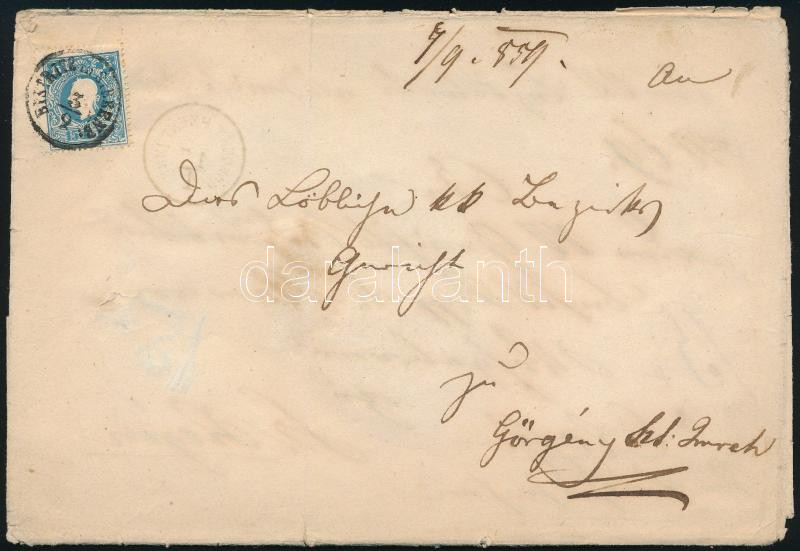 7/9. 859.
An
Das Löbliche kk Bezirks
Gericht
darabanth
zu
Görgény Szt: Imreh